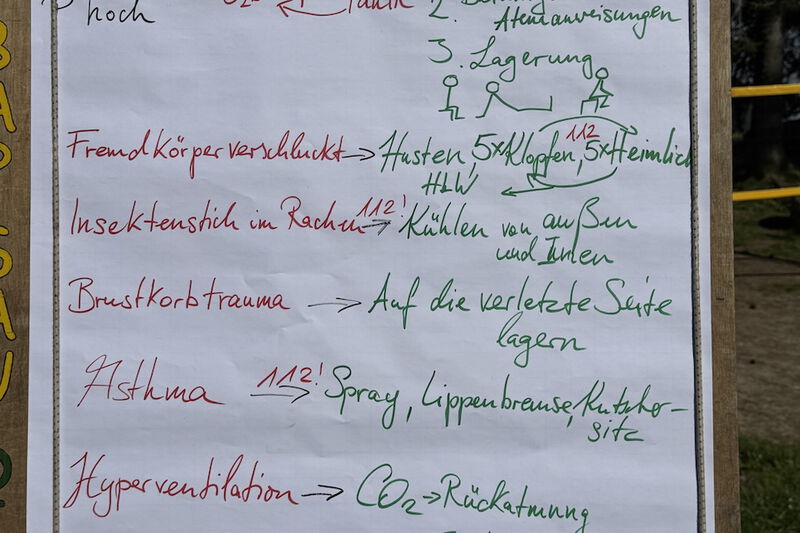 hoch
Atemanweisungen
3. Lagerung
Fremdkörper verschluckt → Husten, 5x Klopfen, 112 5x Heimlich
HLW
Insektenstich im Rachen 112! → Kühlen von außen
und Innen
Brustkorbtrauma → Auf die verletzte Seite
lagern
Asthma 112! → Spray, Lippenbremse, Kutscher-
sitz
Hyperventilation → CO₂ → Rückatmung